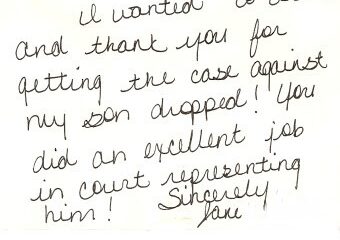 I wanted to
and thank you for
getting the case against
my son dropped! You
did an excellent job
in court representing
him! Sincerely
Jane